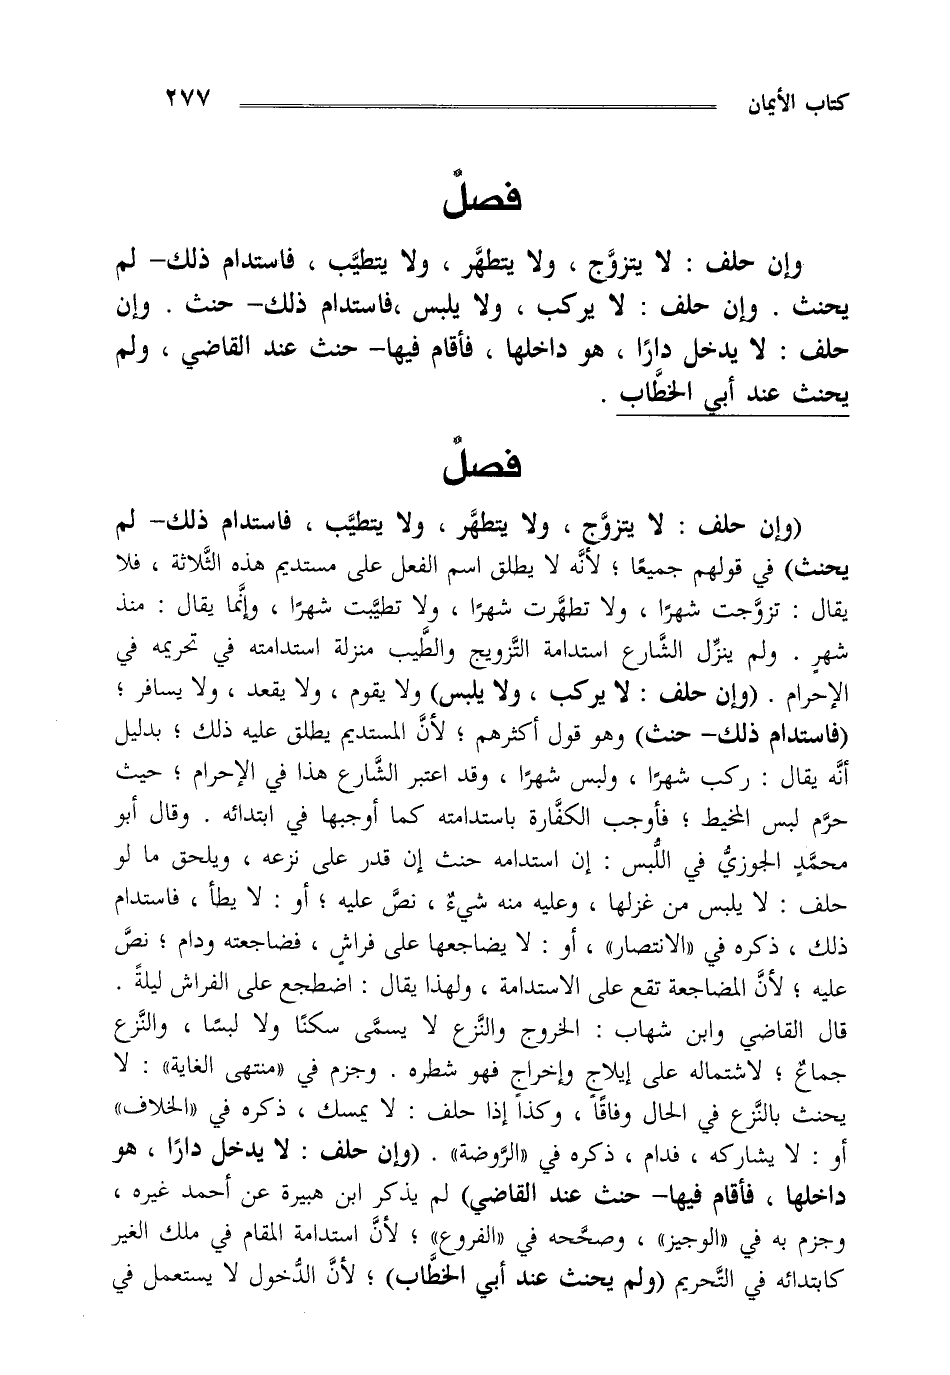 كتاب الأيمان ٢٧٧
فصلٌ
وإن حلف : لا يتزوَّج ، ولا يتطهَّر ، ولا يتطيَّب ، فاستدام ذلك– لم
يحنث . وإن حلف : لا يركب ، ولا يلبس ،فاستدام ذلك– حنث . وإن
حلف : لا يدخل دارًا ، هو داخلها ، فأقام فيها– حنث عند القاضي ، ولم
يحنث عند أبي الخطَّاب .
فصلٌ
(وإن حلف : لا يتزوَّج ، ولا يتطهَّر ، ولا يتطيَّب ، فاستدام ذلك– لم
يحنث) في قولهم جميعًا ؛ لأنَّه لا يطلق اسم الفعل على مستديم هذه الثَّلاثة ، فلا
يقال : تزوَّجت شهرًا ، ولا تطهَّرت شهرًا ، ولا تطيَّبت شهرًا ، وإنَّما يقال : منذ
شهرٍ . ولم ينزِّل الشَّارع استدامة التَّزويج والطِّيب منزلة استدامته في تحريمه في
الإحرام . (وإن حلف : لا يركب ، ولا يلبس) ولا يقوم ، ولا يقعد ، ولا يسافر ؛
(فاستدام ذلك– حنث) وهو قول أكثرهم ؛ لأنَّ المستديم يطلق عليه ذلك ؛ بدليل
أنَّه يقال : ركب شهرًا ، ولبس شهرًا ، وقد اعتبر الشَّارع هذا في الإحرام ؛ حيث
حرَّم لبس المخيط ؛ فأوجب الكفَّارة باستدامته كما أوجبها في ابتدائه . وقال أبو
محمَّدٍ الجوزيُّ في اللُّبس : إن استدامه حنث إن قدر على نزعه ، ويلحق ما لو
حلف : لا يلبس من غزلها ، وعليه منه شيءٌ ، نصَّ عليه ؛ أو : لا يطأ ، فاستدام
ذلك ، ذكره في «الانتصار» ، أو : لا يضاجعها على فراشٍ ، فضاجعته ودام ؛ نصَّ
عليه ؛ لأنَّ المضاجعة تقع على الاستدامة ، ولهذا يقال : اضطجع على الفراش ليلةً .
قال القاضي وابن شهاب : الخروج والنَّزع لا يسمَّى سكنًا ولا لبسًا ، والنَّزع
جماعٌ ؛ لاشتماله على إيلاجٍ وإخراجٍ فهو شطره . وجزم في «منتهى الغاية» : لا
يحنث بالنَّزع في الحال وفاقًا ، وكذا إذا حلف : لا يمسك ، ذكره في «الخلاف»
أو : لا يشاركه ، فدام ، ذكره في «الرَّوضة» . (وإن حلف : لا يدخل دارًا ، هو
داخلها ، فأقام فيها– حنث عند القاضي) لم يذكر ابن هبيرة عن أحمد غيره ،
وجزم به في «الوجيز» ، وصحَّحه في «الفروع» ؛ لأنَّ استدامة المقام في ملك الغير
كابتدائه في التَّحريم (ولم يحنث عند أبي الخطَّاب) ؛ لأنَّ الدُّخول لا يستعمل في